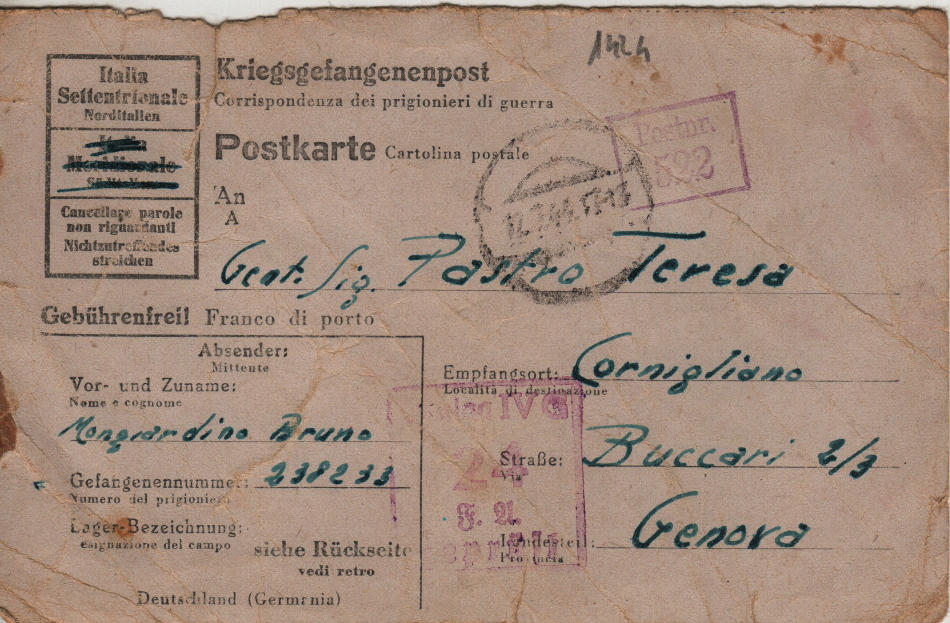 1424
Italia
Settentrionale
Norditalien
Italia
Meridionale
Cancellare parole
non riguardanti
Nichtzutreffendes
streichen
Kriegsgefangenenpost
Corrispondenza dei prigionieri di guerra
Postkarte Cartolina postale
Postnr.
522
12.7.44.17-18
An
A
Gent. Sig. Pastro Teresa
Gebührenfrei! Franco di porto
Absender:
Mittente
Vor- und Zuname:
Nome e cognome
Mongiardino Bruno
Gefangenennummer: 238233
Numero del prigioniero
Lager-Bezeichnung:
esignazione del campo
siehe Rückseite
vedi retro
Deutschland (Germania)
Empfangsort: Cornigliano
Località di destinazione
Straße: Buccari 2/3
Via
Landesteil: Genova
Provincia
Stalag IV G
24
F. A.
geprüft